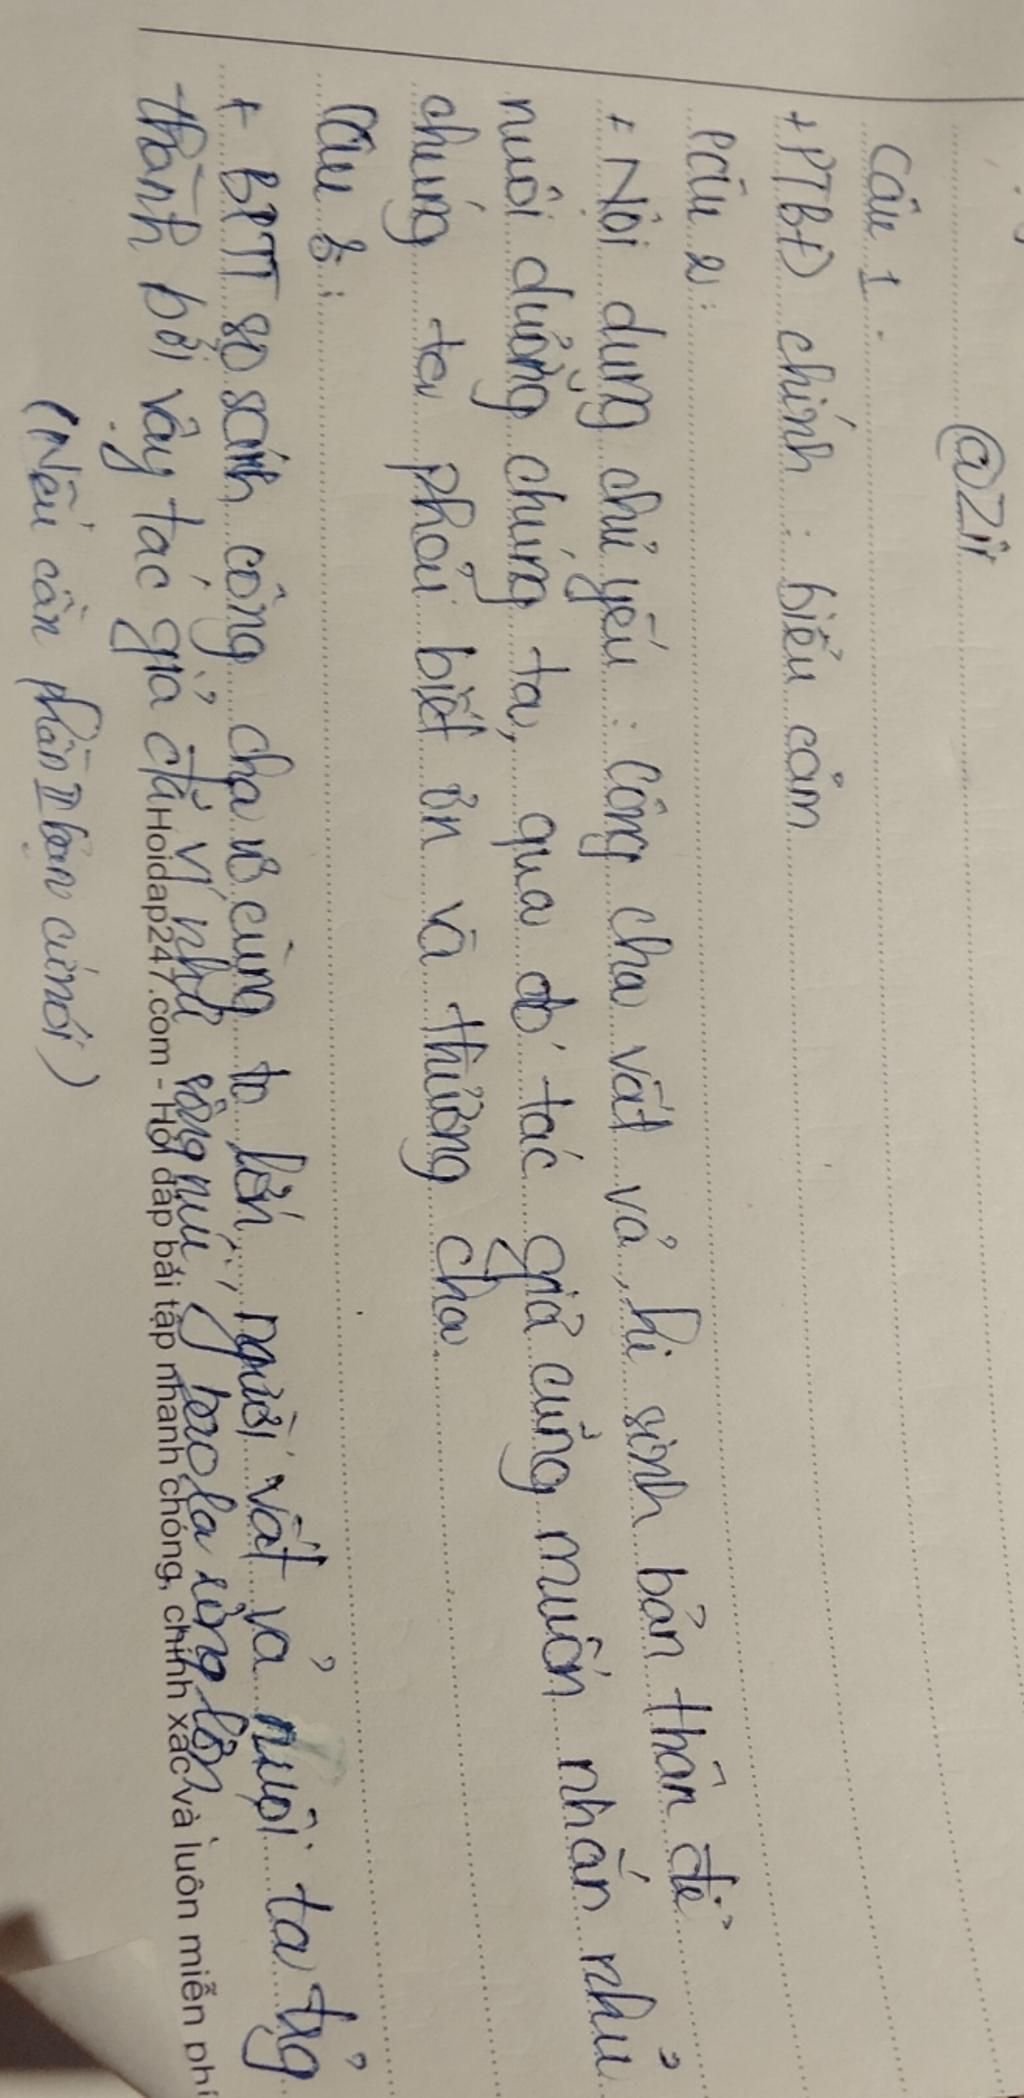 @Zii
Câu 1.
+ PTBĐ chính : biểu cảm
Câu 2 :
+ Nội dung chủ yếu : Công cha vất vả, hi sinh bản thân để
nuôi dưỡng chúng ta, qua đó tác giả cũng muốn nhắn nhủ
chúng ta phải biết ơn và thương cha.
Câu 3 :
+ BPTT so sánh công cha vô cùng to lớn, người vất vả nuôi ta trg
thành bởi vậy tác giả đã ví như sông núi bao la rộng lớn
Hoidap247.com - Hỏi đáp bài tập nhanh chóng, chính xác và luôn miễn phí
(Nếu cần phần II bạn cứ nói)